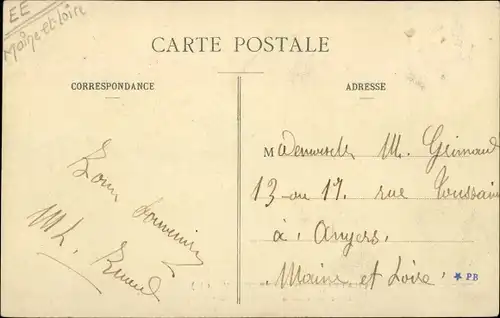 EE
Maine-et-Loire
CARTE POSTALE
CORRESPONDANCE
ADRESSE
Mademoiselle M. Grimaud
13 ou 17. rue Toussaint
à Angers.
Maine et Loire.
PB
Bon Souvenir